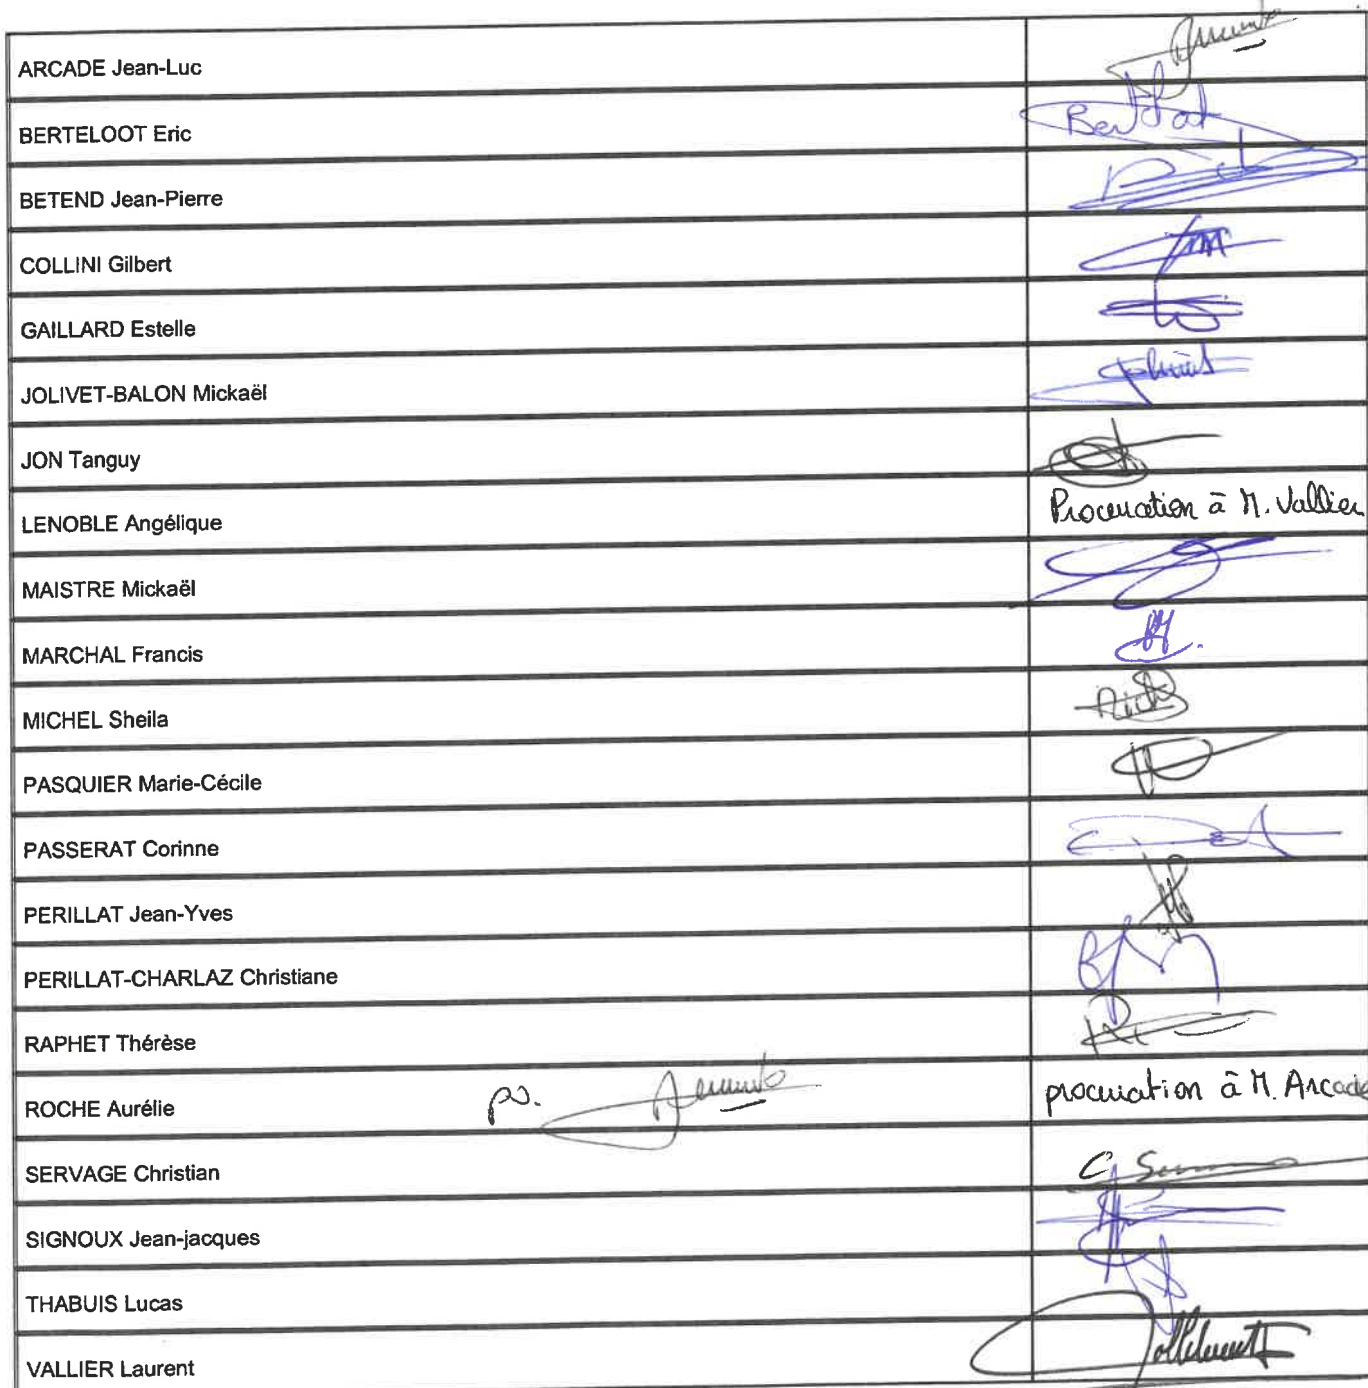 ARCADE Jean-Luc
BERTELOOT Eric
BETEND Jean-Pierre
COLLINI Gilbert
GAILLARD Estelle
JOLIVET-BALON Mickaël
JON Tanguy
LENOBLE Angélique Procuration à M. Vallier
MAISTRE Mickaël
MARCHAL Francis
MICHEL Sheila
PASQUIER Marie-Cécile
PASSERAT Corinne
PERILLAT Jean-Yves
PERILLAT-CHARLAZ Christiane
RAPHET Thérèse
ROCHE Aurélie po. procuration à M. Arcade
SERVAGE Christian
SIGNOUX Jean-jacques
THABUIS Lucas
VALLIER Laurent